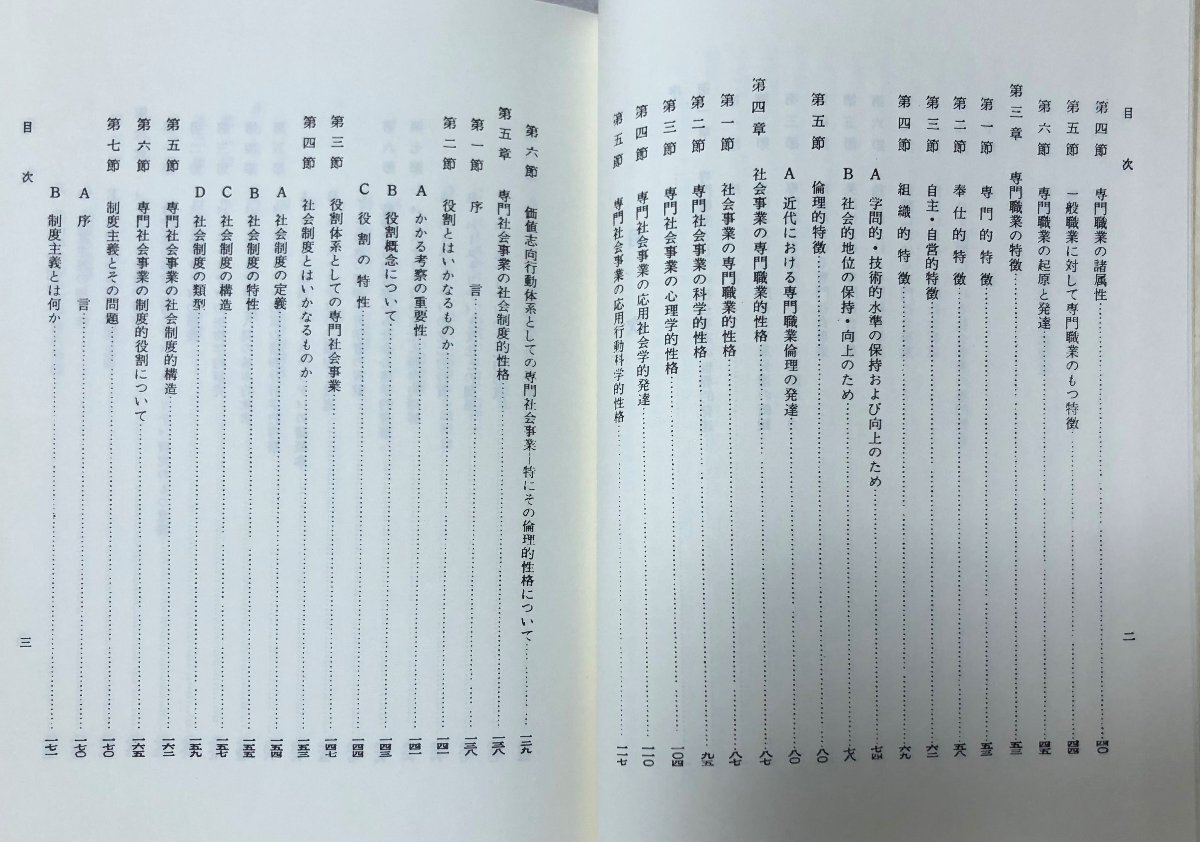 目次
二
第四節 専門職業の諸属性……四〇
第五節 一般職業に対して専門職業のもつ特徴……四四
第六節 専門職業の起原と発達……四五
第三章 専門職業の特徴……五三
第一節 専門的特徴……五三
第二節 奉仕的特徴……五八
第三節 自主・自営的特徴……六二
第四節 組織的特徴……六九
A 学問的・技術的水準の保持および向上のため……七四
B 社会的地位の保持・向上のため……七八
第五節 倫理的特徴……八〇
A 近代における専門職業倫理の発達……八〇
第四章 社会事業の専門職業的性格……八七
第一節 社会事業の専門職業的性格……八七
第二節 専門社会事業の科学的性格……九五
第三節 専門社会事業の心理学的性格……一〇四
第四節 専門社会事業の応用社会学的発達……一一〇
第五節 専門社会事業の応用行動科学的性格……一一七
第六節 価値志向行動体系としての専門社会事業―特にその倫理的性格について……一二九
第五章 専門社会事業の社会制度的性格……一三八
第一節 序言……一三八
第二節 役割とはいかなるものか……一四一
A かかる考察の重要性……一四一
B 役割概念について……一四三
C 役割の特性……一四四
第三節 役割体系としての専門社会事業……一四七
第四節 社会制度とはいかなるものか……一五三
A 社会制度の定義……一五四
B 社会制度の特性……一五五
C 社会制度の構造……一五七
D 社会制度の類型……一五九
第五節 専門社会事業の社会制度的構造……一六二
第六節 専門社会事業の制度的役割について……一六五
第七節 制度主義とその問題……一七〇
A 序言……一七〇
B 制度主義とは何か……一七一
目次
三